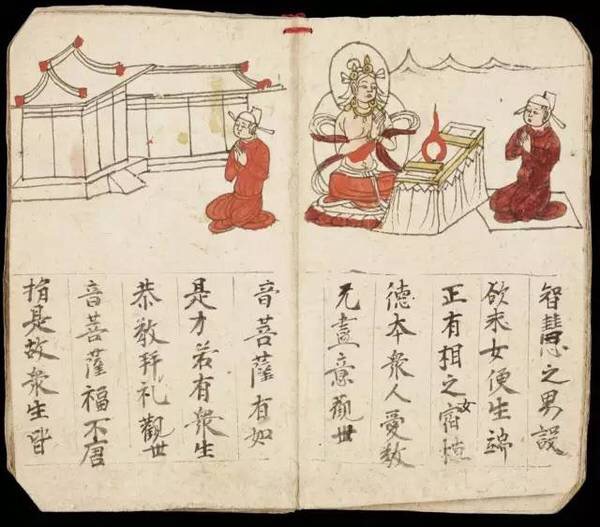 智慧之男設
欲求女便生端
正有相之女宿植
德本衆人愛敬
无盡意觀世
音菩薩有如
是力若有衆生
恭敬拜礼觀世
音菩薩福不唐
捐是故衆生皆